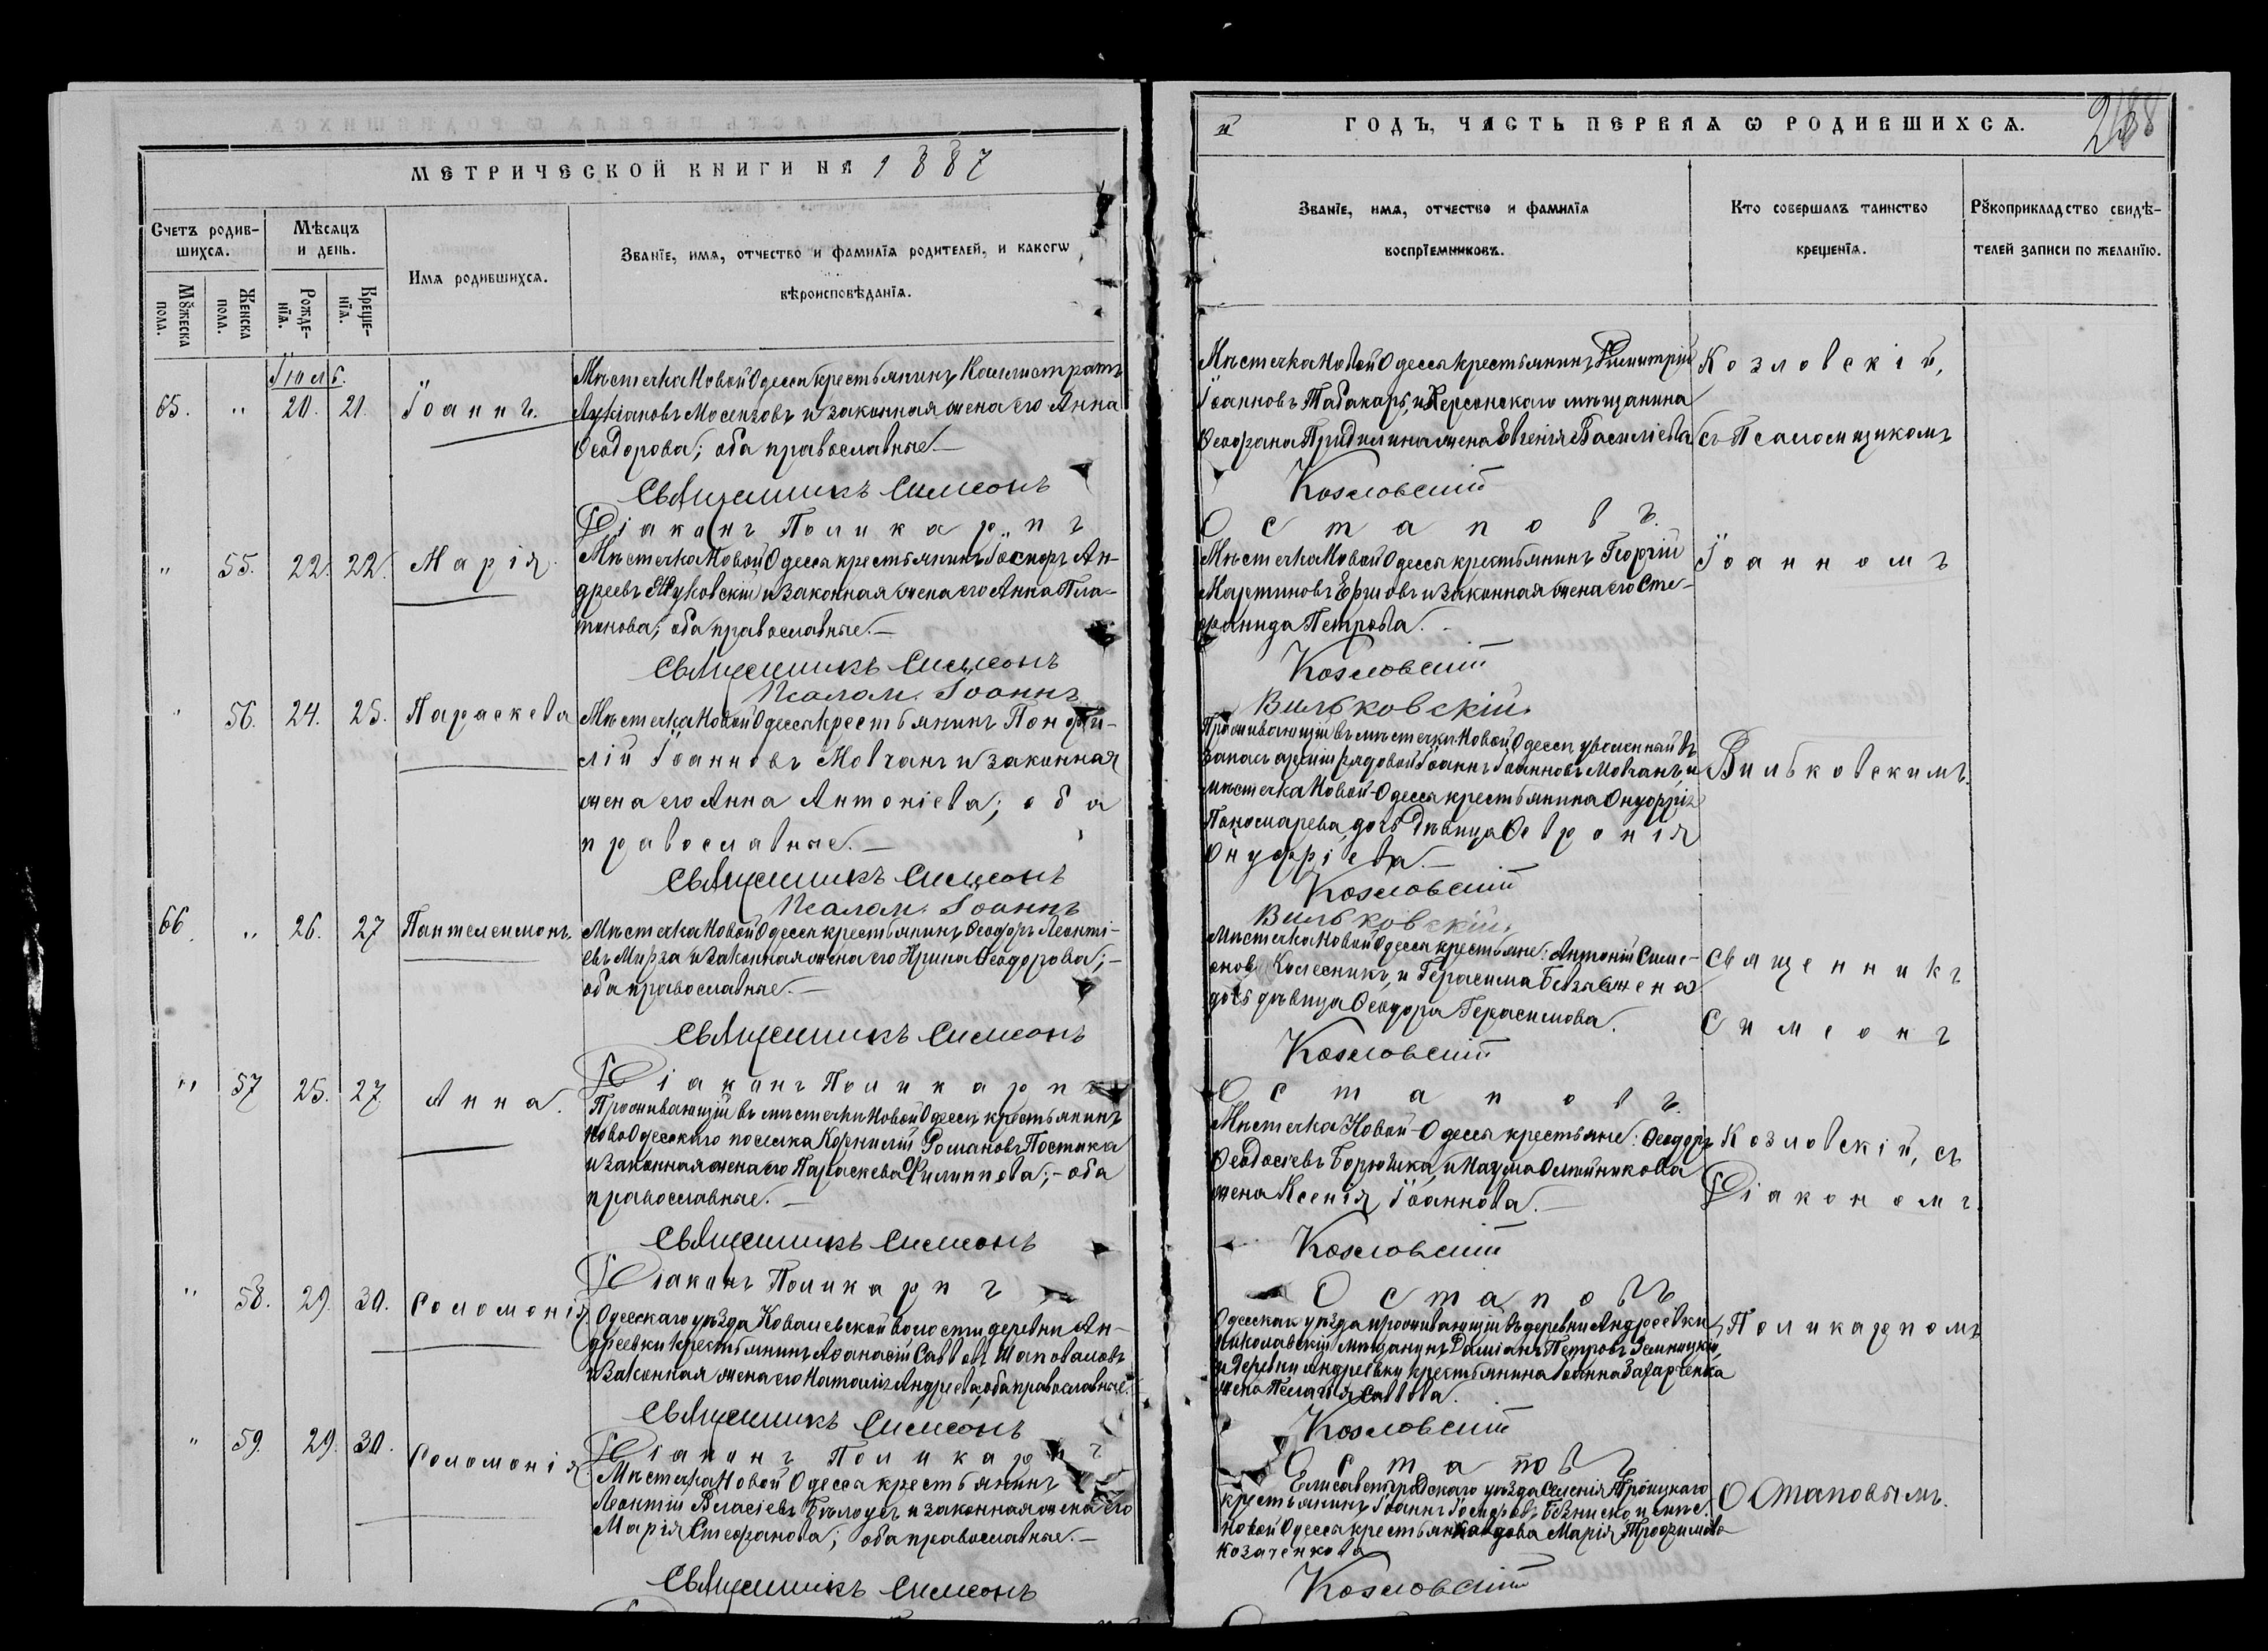 МЕТРИЧЕСКОЙ КНИГИ НА 1887
Счетъ родив-
шихся.
Мѣсяцъ
и день.
Имя родившихся.
Званіе, имя, отчество и фамилія родителей, и какогѡ
вѣроисповѣданія.
Мꙋжеска
пола.
Женска
пола.
Рожде-
нія.
Креще-
нія.
Іюль.
65. " 20. 21. Іоаннъ.
Мѣстечка Новой Одессы крестьянинъ Каллистратъ
Лукіановъ Мосензовъ и законная жена его Анна
Ѳеодорова; оба православные.—
Священникъ Симеонъ
Діаконъ Поликарпъ
" 55. 22. 22. Марія.
Мѣстечка Новой Одессы крестьянинъ Іосифъ Ан-
дреевъ Жуковскій и законная жена его Анна Пла-
тонова; оба православные.—
Священникъ Симеонъ
Псалом. Іоаннъ
" 56. 24. 25. Параскева
Мѣстечка Новой Одессы крестьянинъ Понфи-
лій Іоанновъ Мовчанъ и законная
жена его Анна Антоніева; оба
православные.—
Священникъ Симеонъ
Псалом. Іоаннъ
66. " 26. 27 Пантелеимонъ.
Мѣстечка Новой Одессы крестьянинъ Ѳеодоръ Леонті-
евъ Мирза и законная жена его Ирина Ѳеодорова;—
оба православные.—
Священникъ Симеонъ
Діаконъ Поликарпъ
" 57 25. 27. Анна.
Проживающій въ мѣстечкѣ Новой Одессы крестьянинъ
Ново Одесскаго поселка Корнилій Романовъ Постика
и законная жена его Параскева Филиппова;—оба
православные.—
Священникъ Симеонъ
Діаконъ Поликарпъ
" 58. 29. 30. Соломонія
Одесскаго уѣзда Ковалевской волости деревни Ан-
дреевки крестьянинъ Аѳанасій Савовъ Шаповаловъ
и законная жена его Наталія Андреева, оба православные.
Священникъ Симеонъ
Діаконъ Поликарпъ
" 59. 29. 30. Соломонія
Мѣстечка Новой Одессы крестьянинъ
Леонтій Власіевъ Бѣлоусъ и законная жена его
Марія Стефанова; оба православные.—
Священникъ Симеонъ
ГОДЪ, ЧАСТЬ ПЕРВАЯ Ѡ РОДИВШИХСЯ.
Званіе, имя, отчество и фамилія
воспріемниковъ.
Кто совершалъ таинство
крещенія.
Рꙋкоприкладство свидѣ-
телей записи по желанію.
Мѣстечка Новой Одессы крестьянинъ Димитрій
Іоанновъ Табакаръ, и Херсонскаго мѣщанина
Ѳеофана жена Евгенія Василіева
Козловскій,
съ Псаломщикомъ
Козловскій
Остаповъ.
Мѣстечка Новой Одессы крестьянинъ Георгій
Мартиновъ Ершовъ и законная жена его Сте-
фанида Петрова.
Іоанномъ
Козловскій
Вильковскій.
Проживающій въ мѣстечкѣ Новой Одессы уволенный въ
запасъ арміи рядовой Іоаннъ Іоанновъ Мовчанъ, и
мѣстечка Новой-Одессы крестьянина Онуфрія
Пономарева дочь дѣвица Ѳевронія
Онуфріева.—
Вильковскимъ.
Козловскій
Вильковскій.
Мѣстечка Новой Одессы крестьяне: Антоній Симе-
оновъ Колесникъ, и Герасима
дочь дѣвица Ѳеодора Герасимова.
Священникъ
Симеонъ
Козловскій
Остаповъ.
Мѣстечка Новой-Одессы крестьяне: Ѳеодоръ
Ѳеодосіевъ и Наума Олейникова
жена Ксенія Іоаннова.—
Козловскій, съ
Діакономъ
Козловскій
Остаповъ
Одесскаго уѣзда проживающій въ деревни Андреевки
Николаевскій мѣщанинъ Даміанъ Петровъ
и деревни Андреевки крестьянина Іоанна Захарченка
жена Пелагія Савова.
Поликарпомъ
Козловскій
Остаповъ
Елисаветградскаго уѣзда селенія Троицкаго
крестьянинъ Іоаннъ Іосифовъ и мѣс.
Новой Одессы крестьянка вдова Марія Трофимова
Козаченкова
Остаповымъ.
Козловскій